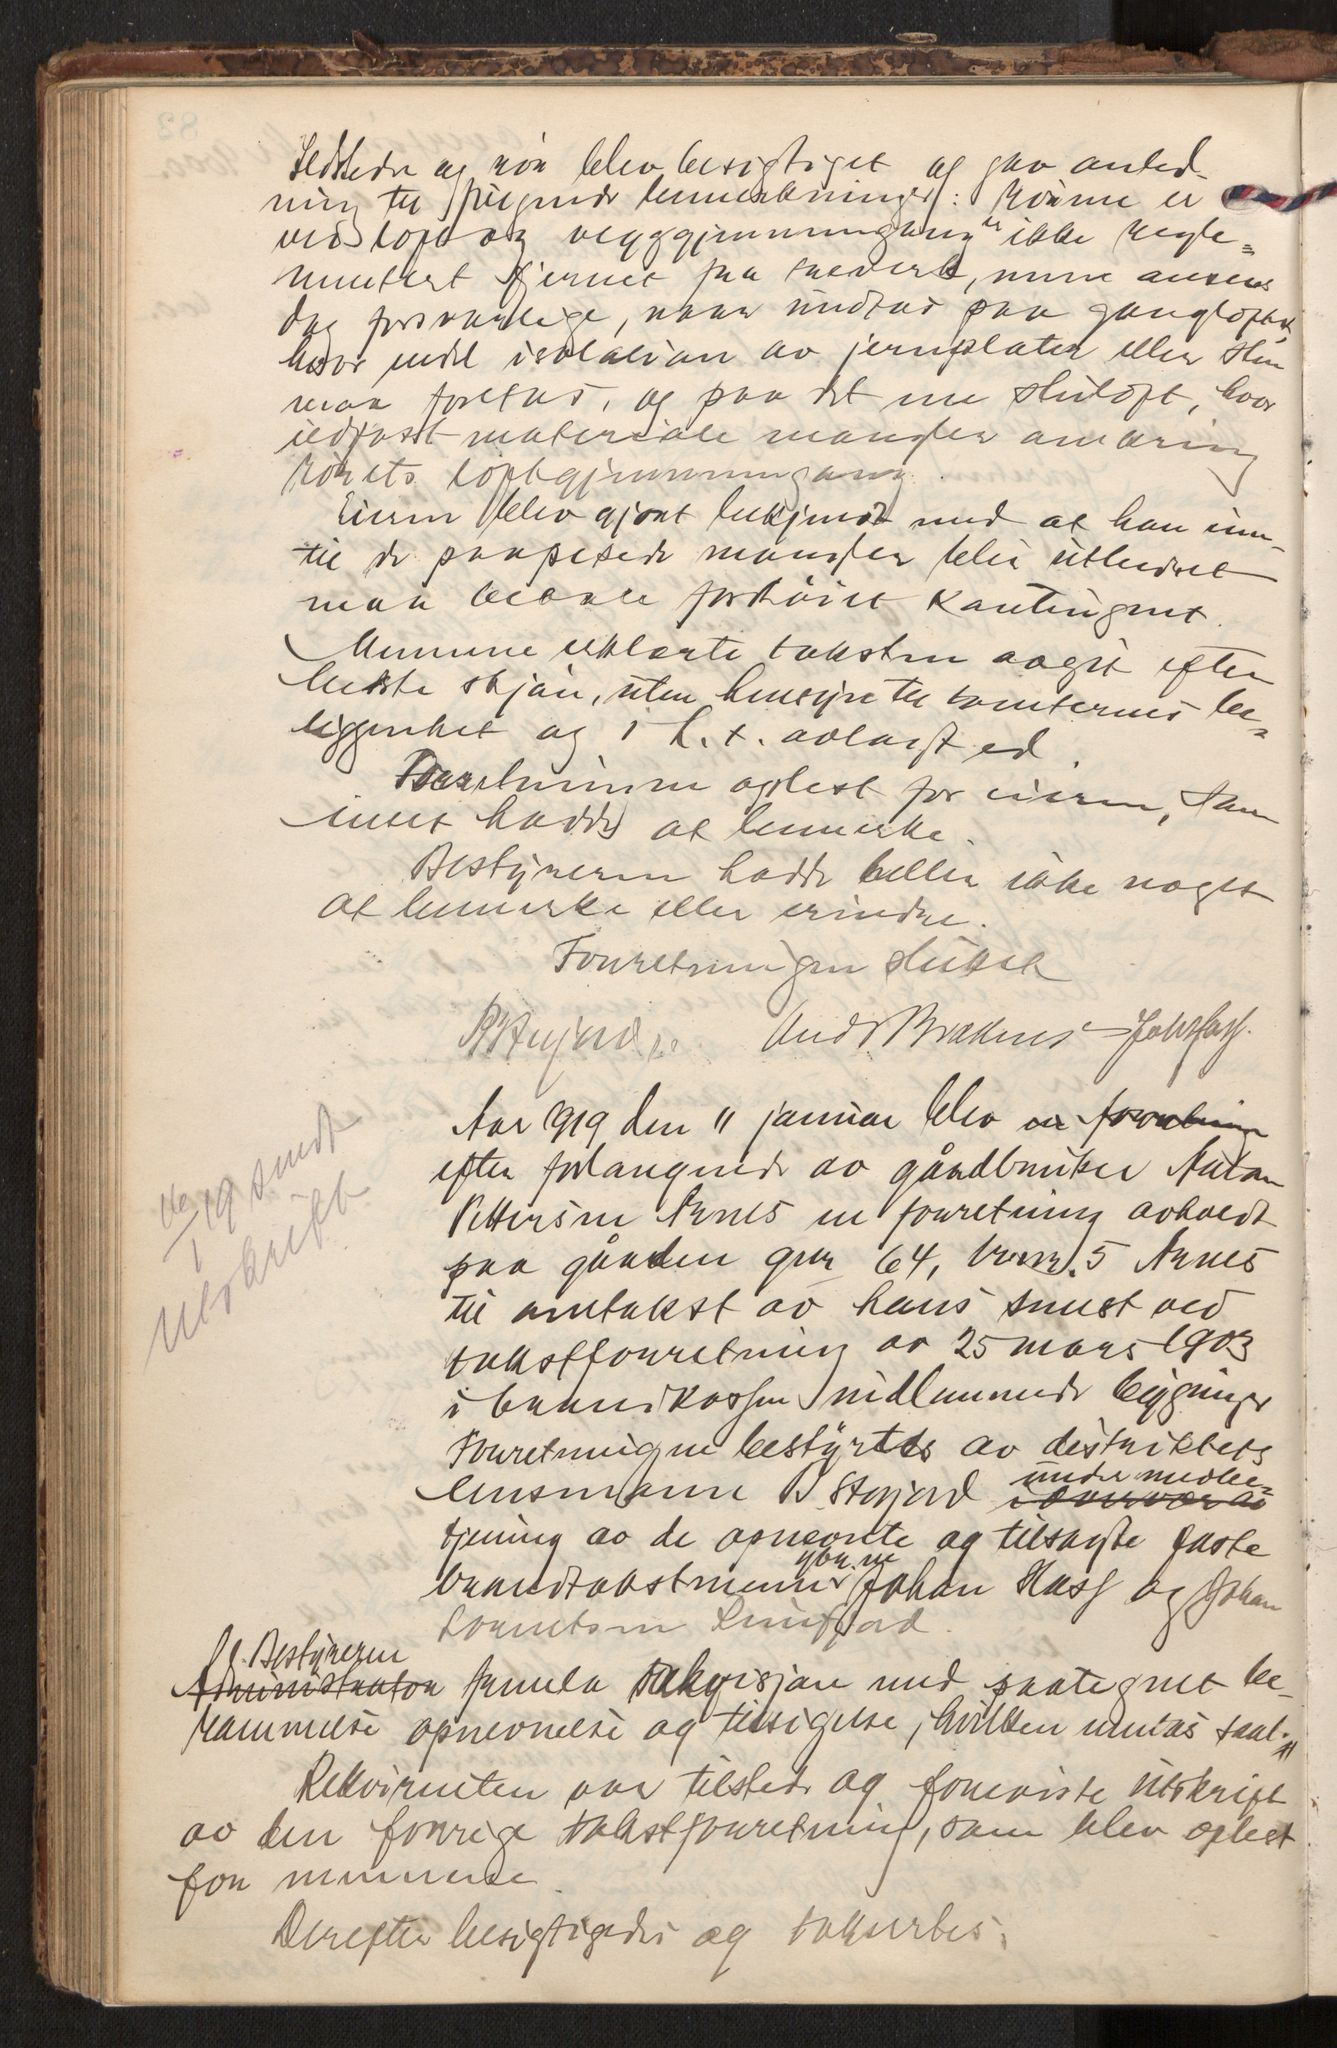 Ildsteder og rør blev besigtiget og gav anled-
ning til følgende bemerkninger: Rørene er
ved loft og veggjennemgang er ikke regle-
mentert fjernet fra træverk, men ansees
dog forsvarlige, naar undtas paa gangloftet
hvor endel isolasion av jernplater eller sten
maa foretas, og paa det ene stuloft, hvor
ildfast materiale mangler omkring
rørets loftgjennemgang.
Eieren blev gjort bekjendt med at han inn-
til de paapekede mangler blir utbedret
maa betale forhøiet kontingent.
Mennene erklærte taksten avgit efter
beste skjøn, uten hensyn til tomternes be-
liggenhet og i h.t. avlagt ed.
Forretningen oplest for eieren, som
intet hadde at bemerke.
Bestyreren hadde heller ikke noget
at bemerke eller erindre.
Forretningen sluttet
B Storjord Johs Hass.
Aar 1919 den 11 januar blev en forretning
efter forlangende av gårdbruker Anton
Pettersen Arnes en forretning avholdt
paa gården gnr 64, brnr. 5 Arnes
til omtakst av hans senest ved
takstforretning av 25 mars 1903
i brannkassen indlemmede bygninger
Forretningen bestyrtes av distriktets
lensmann B Storjord i overvær av under medbe-
tjening av de opnevnte og tilsagte faste
brandtakstmenner Johan Hass og Johan
Lorentsen
Bestyreren
Administrator fremla rekvisisjon med paategnet be-
rammelse opnevnelse og tilsigelse, hvilken inntas saal. #
Rekvirenten var tilstede og foreviste utskrift
av den forrige takstforretning, som blev oplest
for mennene.
Derefter besigtigedes og takserttes:
16/1 19 sendt
utskrift